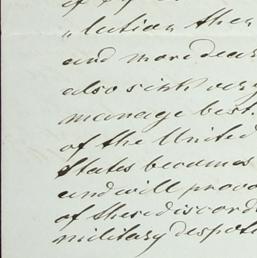 "lation the
and more dear
also sink ver
manage best.
of the United
States becomes
and will provo
of these discord
military despot